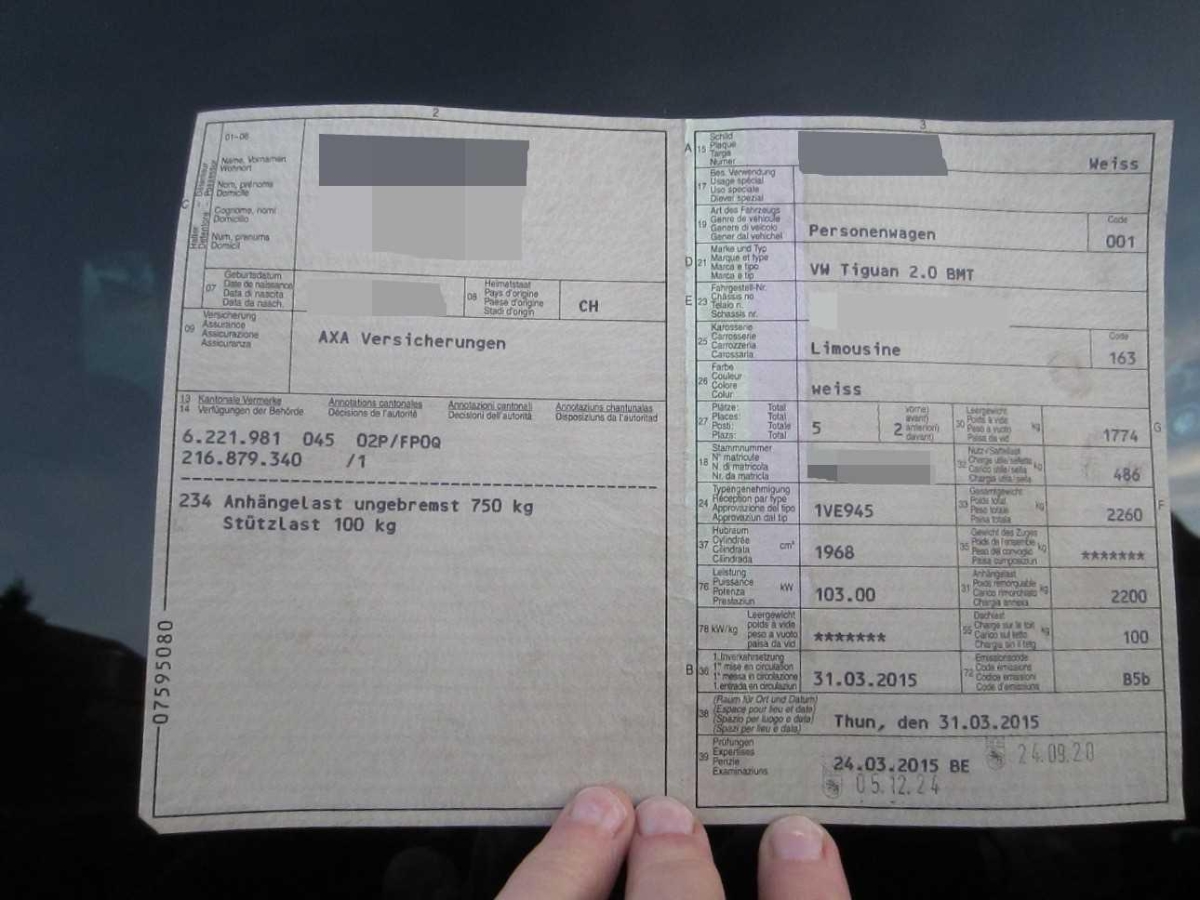 2
01-06
C
Halter
Détenteur
Detentore
Possessur
Name, Vornamen
Wohnort
Nom, prénoms
Domicile
Cognome, nomi
Domicilio
Num, prenums
Domicil
07
Geburtsdatum
Date de naissance
Data di nascita
Data da nasch.
08
Heimatstaat
Pays d'origine
Paese d'origine
Stadi d'origin
CH
09
Versicherung
Assurance
Assicurazione
Assicuranza
AXA Versicherungen
13 Kantonale Vermerke Annotations cantonales Annotazioni cantonali Annotaziuns chantunalas
14 Verfügungen der Behörde Décisions de l'autorité Decisioni dell'autorità Disposiziuns da l'autoritad
6.221.981 045 02P/FP0Q
216.879.340 /1
234 Anhängelast ungebremst 750 kg
Stützlast 100 kg
07595080
3
A 15
Schild
Plaque
Targa
Numer
Weiss
17
Bes. Verwendung
Usage spécial
Uso speciale
Diever spezial
19
Art des Fahrzeugs
Genre de véhicule
Genere di veicolo
Gener dal vehichel
Personenwagen
Code
001
D 21
Marke und Typ
Marque et type
Marca e tipo
Marca e tip
VW Tiguan 2.0 BMT
E 23
Fahrgestell-Nr.
Châssis no
Telaio n.
Schassis nr.
25
Karosserie
Carrosserie
Carrozzeria
Carossaria
Limousine
Code
163
26
Farbe
Couleur
Colore
Colur
weiss
27
Plätze: Total
Places: Total
Posti: Totale
Plazs: Total
5
2
vorne)
avant)
anteriori)
davant)
G 30
Leergewicht
Poids à vide
Peso a vuoto
Paisa da vid
kg
1774
18
Stammnummer
N° matricule
N. di matricola
Nr. da matricla
32
Nutz-/Sattellast
Charge utile/sellette
Carico utile/sella
Chargia utila/sella
kg
486
24
Typengenehmigung
Réception par type
Approvazione del tipo
Approvaziun dal tip
1VE945
F 33
Gesamtgewicht
Poids total
Peso totale
Paisa totala
kg
2260
37
Hubraum
Cylindrée
Cilindrata
Cilindrada
cm³
1968
35
Gewicht des Zuges
Poids de l'ensemble
Peso del convoglio
Paisa cumposiziun
kg
*******
76
Leistung
Puissance
Potenza
Prestaziun
kW
103.00
31
Anhängelast
Poids remorquable
Carico rimorchiato
Chargia annexa
kg
2200
78 kW/kg
Leergewicht
poids à vide
peso a vuoto
paisa da vid
*******
55
Dachlast
Charge sur le toit
Carico sul tetto
Chargia sin il tetg
kg
100
B 36
1. Inverkehrsetzung
1re mise en circulation
1a messa in circolazione
1. entrada en circulaziun
31.03.2015
72
Emissionscode
Code émissions
Codice emissioni
Code d'emissiuns
B5b
38
(Raum für Ort und Datum)
(Espace pour lieu et date)
(Spazio per luogo e data)
(Spazi per lieu e data)
Thun, den 31.03.2015
39
Prüfungen
Expertises
Perizie
Examinaziuns
24.03.2015 BE
24.09.20
05.12.24